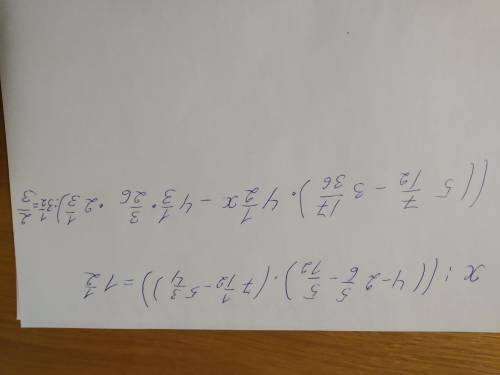 x : ((4 - 2 5/6 - 5/12) · (7 1/12 - 5 3/4)) = 1 1/2
((5 7/12 - 3 17/36) · 4 1/2 x - 4 1/3 · 3/26 · 2 1/3) : 1/32 = 2/3